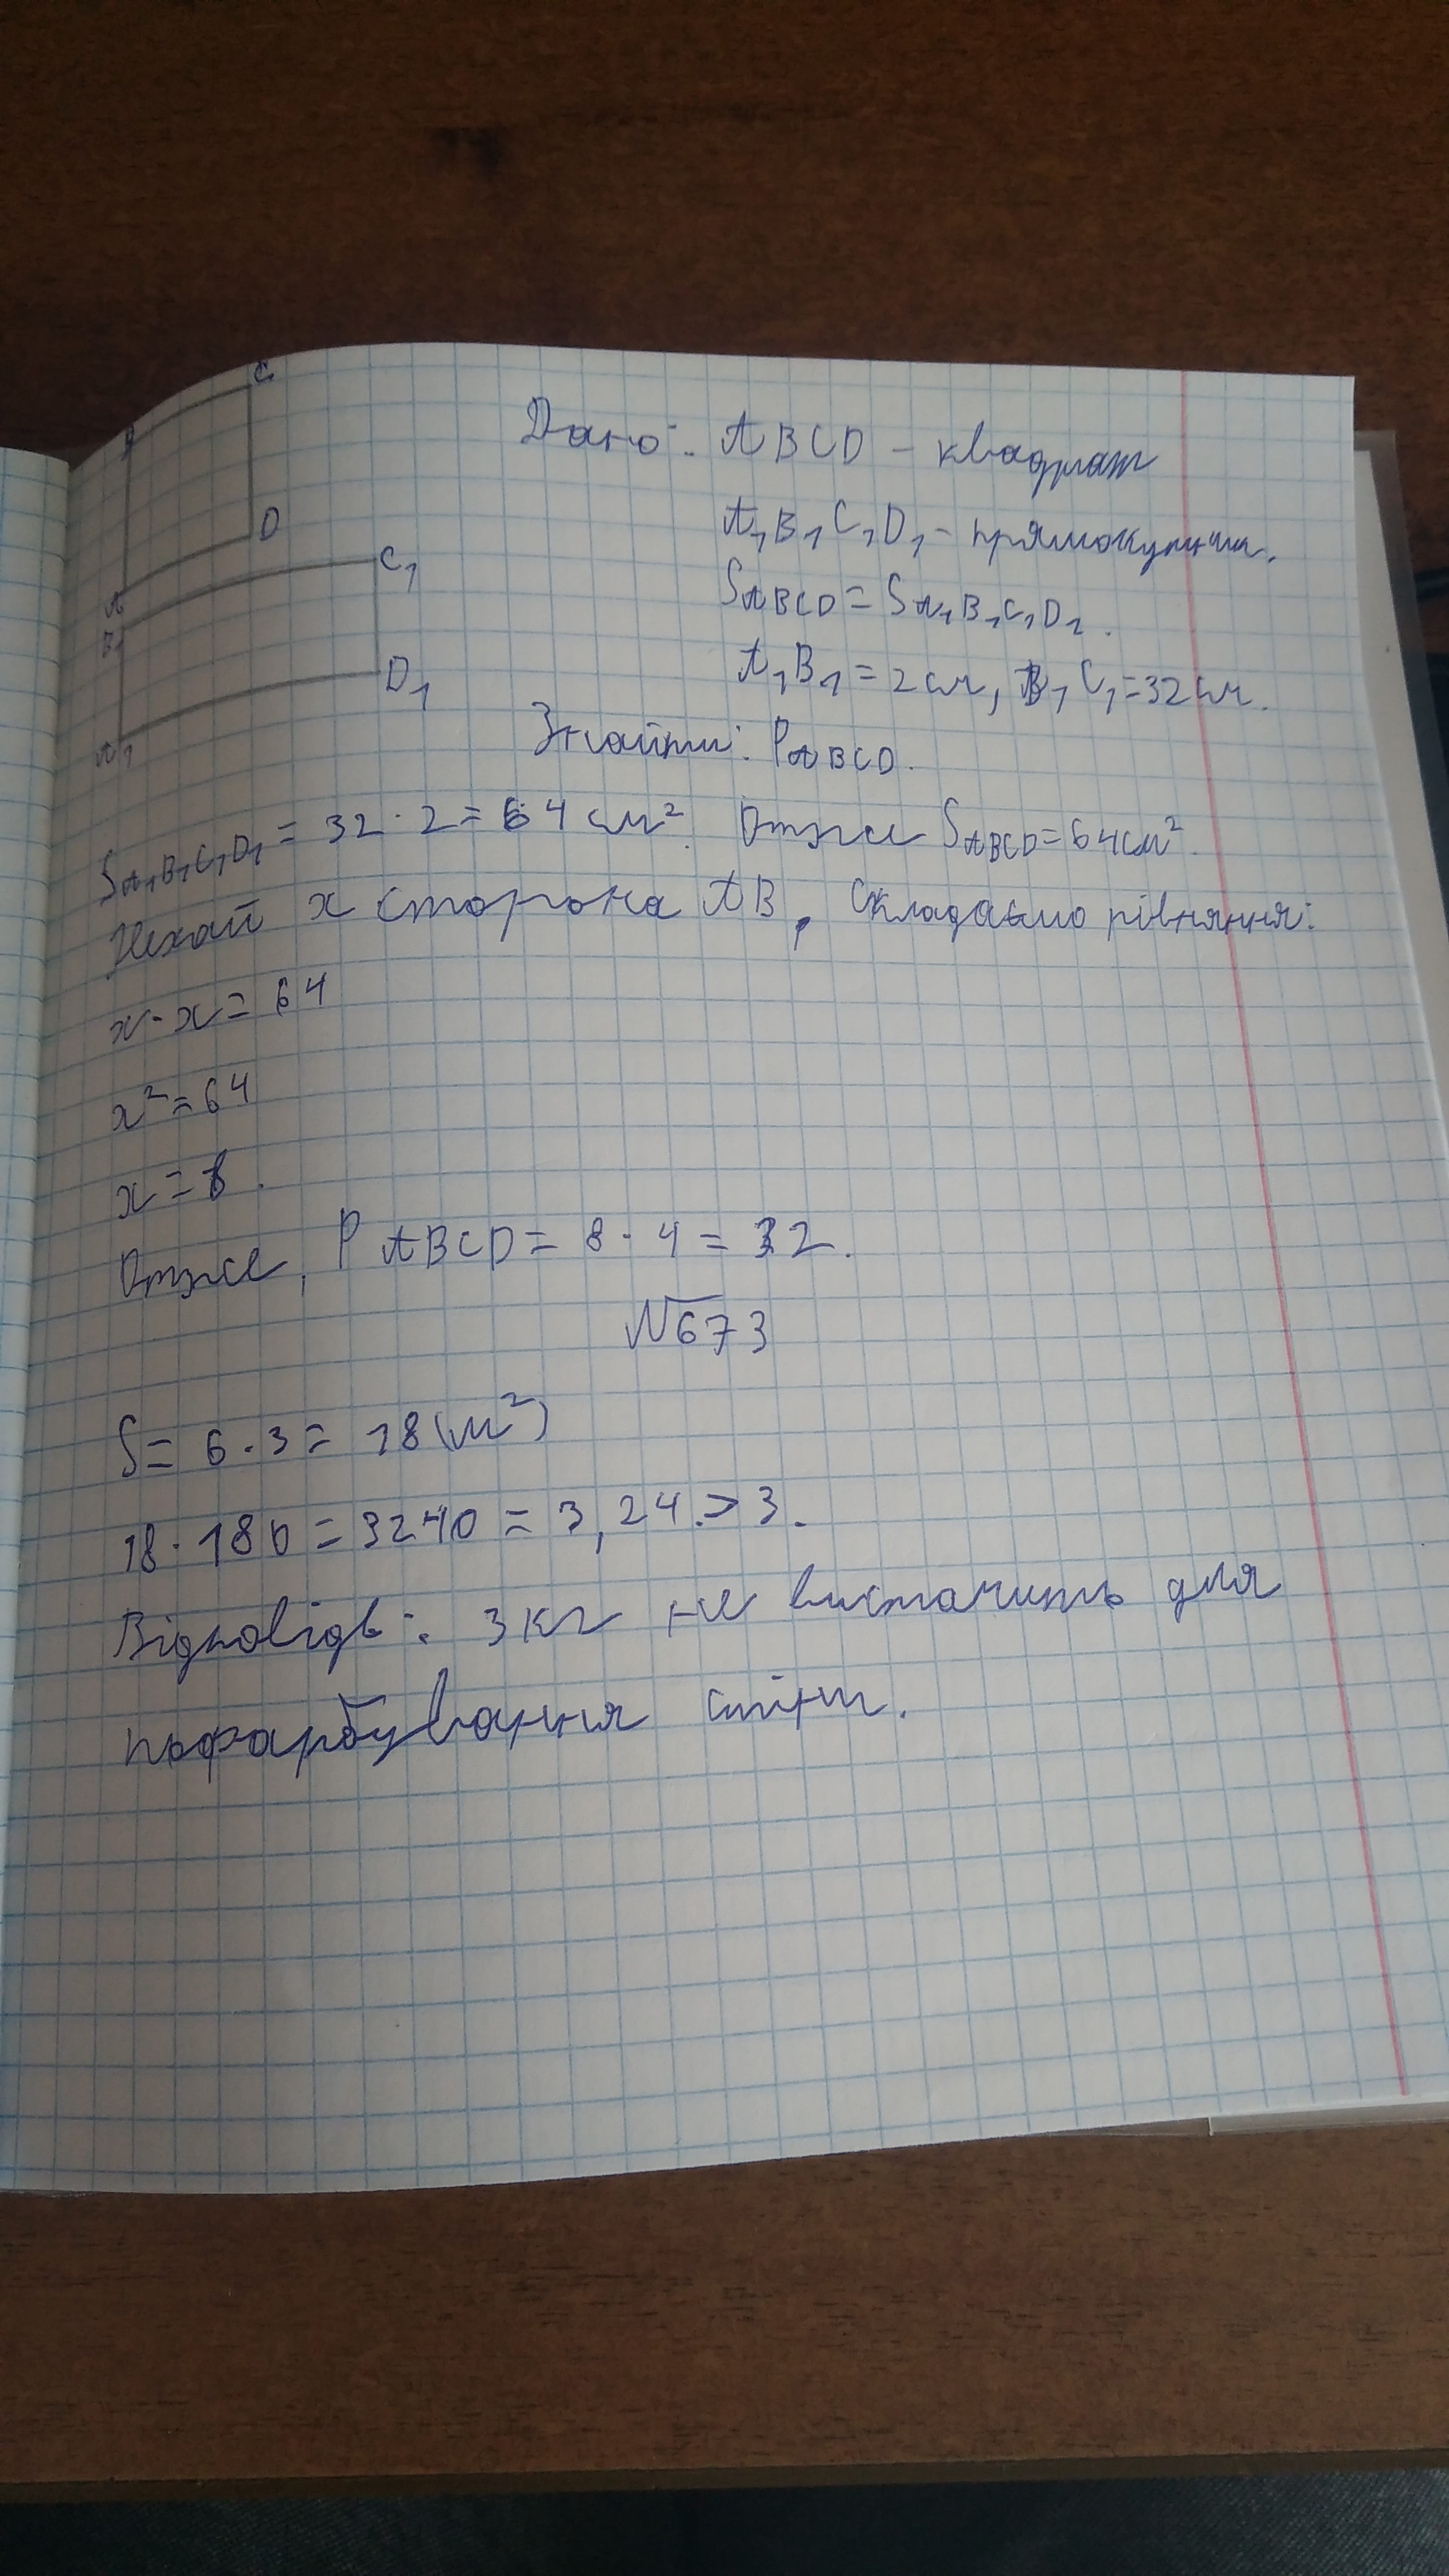 C
B
D
A
C₁
B₁
D₁
A₁
Дано: ABCD - квадрат
A₁B₁C₁D₁ - прямокутник.
SABCD = SA₁B₁C₁D₁.
A₁B₁ = 2 см, B₁C₁ = 32 см.
Знайти: PABCD.
SA₁B₁C₁D₁ = 32 · 2 = 64 см². Отже SABCD = 64 см².
Нехай x сторона AB, складаємо рівняння:
x · x = 64
x² = 64
x = 8.
Отже, PABCD = 8 · 4 = 32.
№673
S = 6 · 3 = 18 (м²)
18 · 180 = 3240 = 3,24 > 3.
Відповідь: 3 кг не вистачить для
пофарбування стіни.